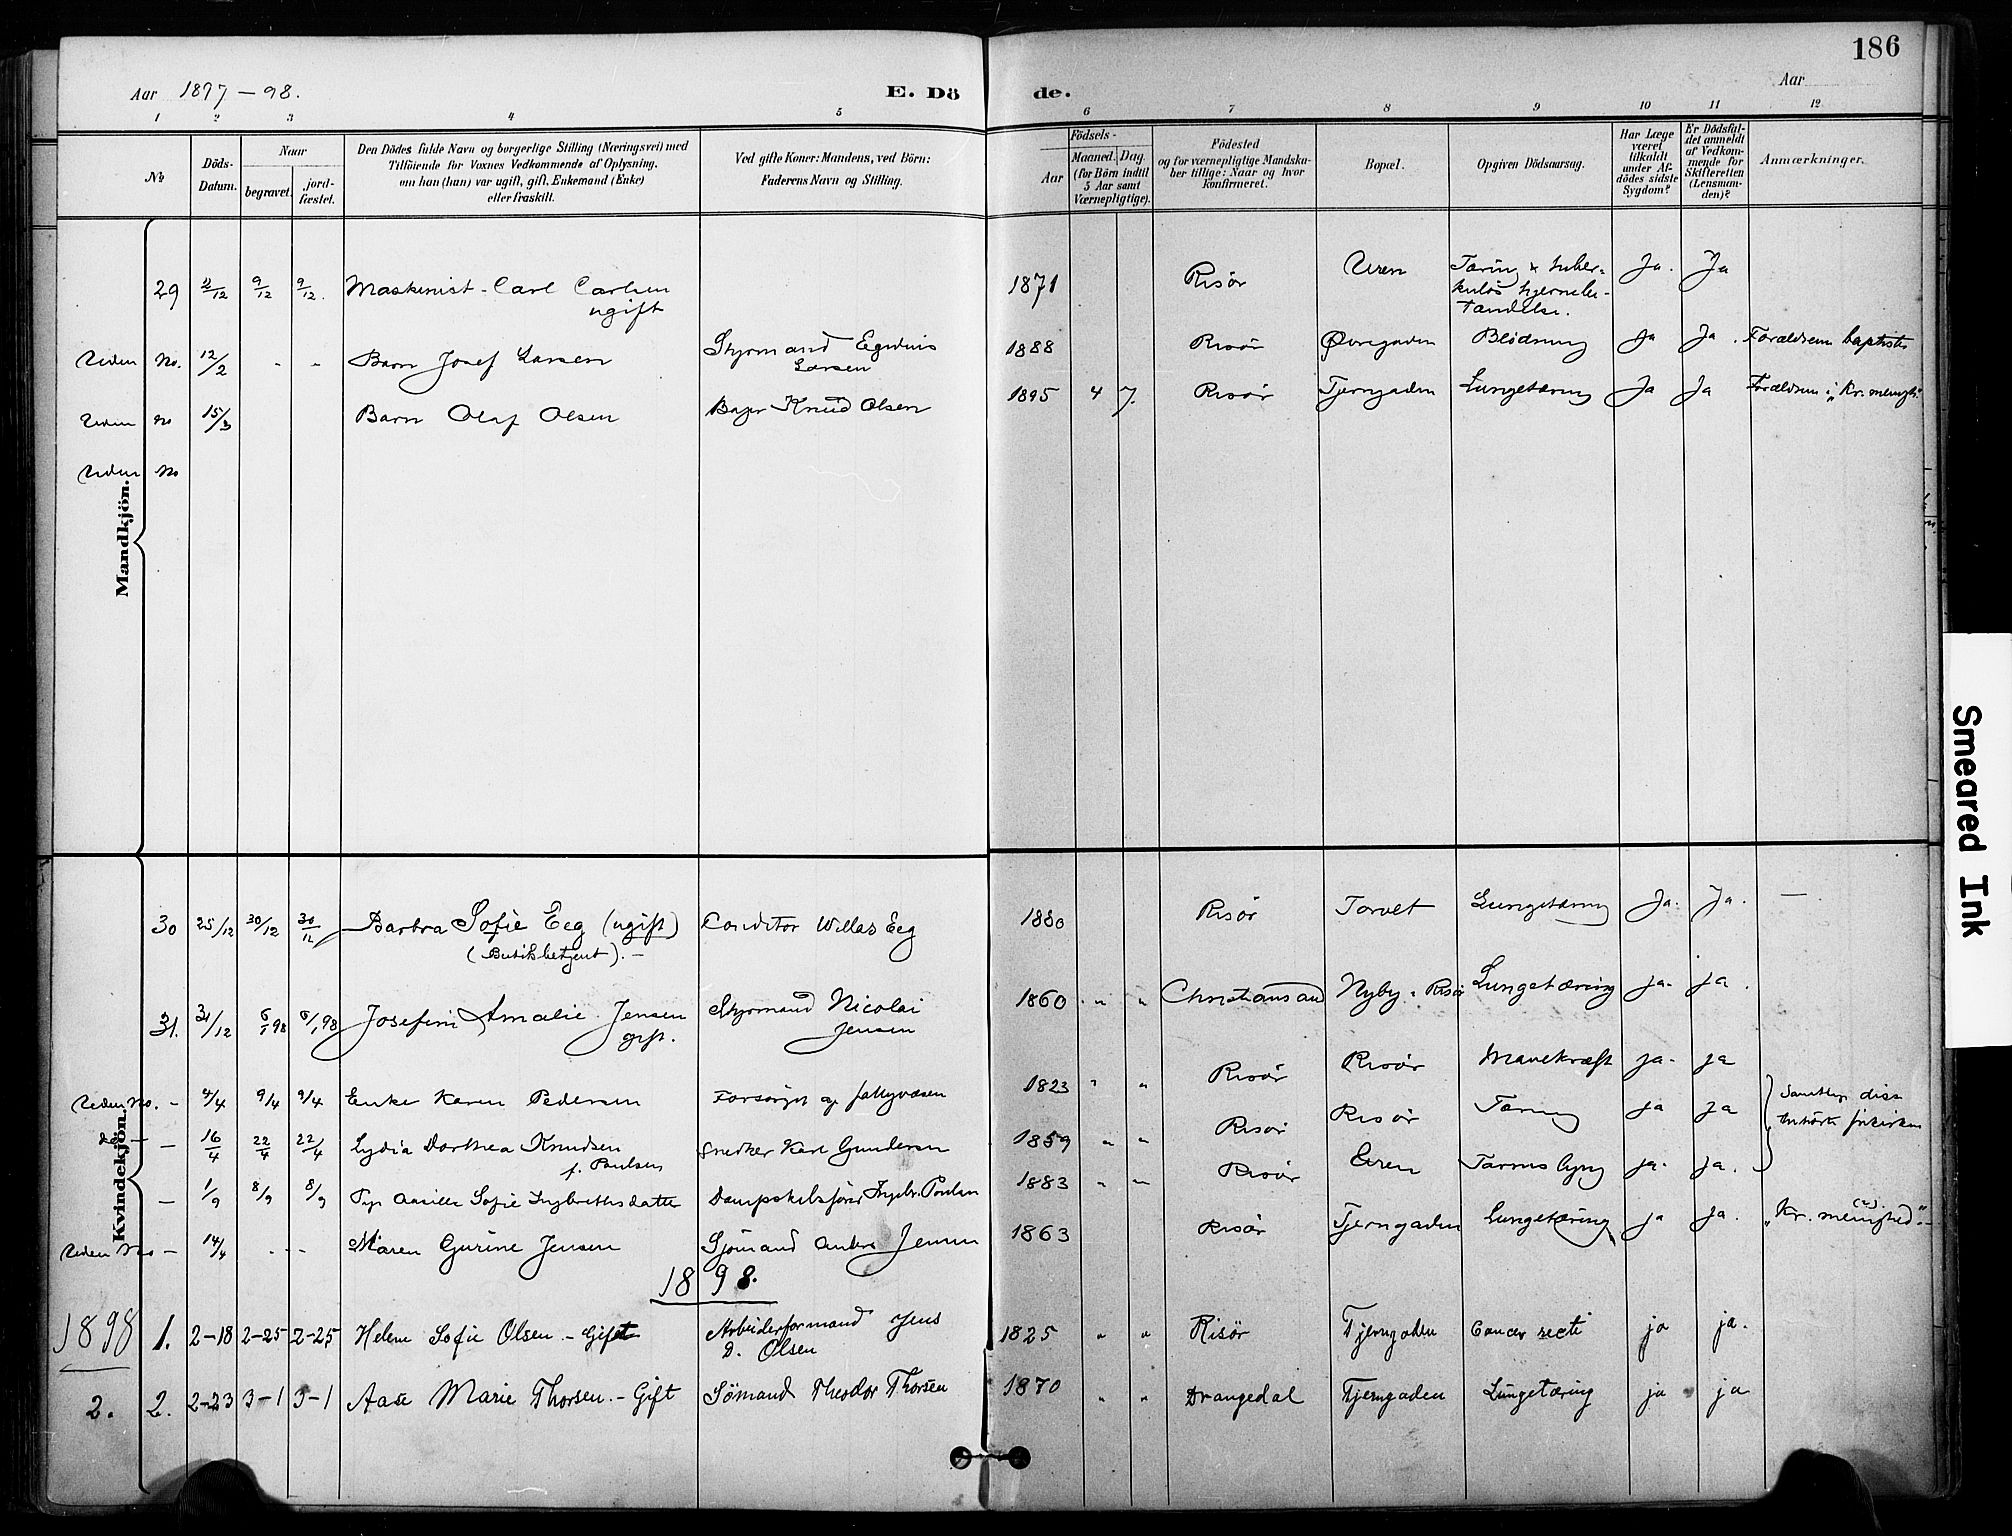 186
Aar 1897-98.
E. Dö
de.
Aar
1 2 3 4 5 6 7 8 9 10 11 12
No
Döds-Datum.
Naar
begravet.
jord-fæstet.
Den Dödes fulde Navn og borgerlige Stilling (Næringsvei) med
Tilföiende for Voxnes Vedkommende af Oplysning,
om han (hun) var ugift, gift, Enkemand (Enke)
eller fraskilt.
Ved gifte Koner: Mandens, ved Börn:
Faderens Navn og Stilling.
Födsels-
Aar
Maaned. Dag.
(for Börn indtil
5 Aar samt
Værnepligtige).
Födested
og for værnepligtige Mandska-
ber tillige: Naar og hvor
konfirmeret.
Bopæl.
Opgiven Dödsaarsag.
Har Læge
været
tilkaldt
under Af-
dödes sidste
Sygdom?
Er Dödsfal-
det anmeldt
af Vedkom-
mende for
Skifteretten
(Lensman-
den)?
Anmærkninger.
Mandkjön.
29 9/12 9/12. Maskinist - Carl Carlsen 1871 Risör Uren Tæring & tuber-
ugift kuløs hjernebe-
tændelse. Ja. Ja
Uden No. 12/2 - - Barn Josef Larsen Styrmand Egidius
Larsen 1888 Risör Øvregaden Blødning Ja Ja. Forældrene baptister
Uden No 15/3 Barn Olaf Olsen Bager Knud Olsen 1895 4 7. Risör Tjerngaden Lungetæring Ja Ja Forældrene i "Kr. menigh."
Uden No
Kvindekjön.
30 25/12 30/12 30/12 Barbra Sofie Eeg (ugift) Conditor Willas Eeg 1880 Risör Torvet Lungetæring Ja. Ja. —
(Butikbetjent). -
31. 31/12 6/1 98 6/1 98 Josefine Amalie Jensen Styrmand Nicolai 1860 " " Christiansand Nyby. Risör Lungetæring ja. ja.
gift. Jensen
Uden No. - 4/4 9/4 9/4 Enke Karen Pedersen Forsörget af fattigvæsen 1823 " " Risör Risör Mavekræft ja. ja
do - - 16/4 22/4 22/4 Lydia Dorthea Knudsen Snedker Karl Gundersen 1859 " " Risör Risör Tæring ja ja
f. Paulsen
Samtlige disse
tilhørte frikirken
- 1/9 8/9 8/9 Pige Camilla Sofie Ingbrethsdatter Dampskibsfører Ingebr. Poulsen 1883 " " Risör Uren Tarmslyng ja. ja.
Uden No - 14/4 - - - Maren Gurine Jensen Sjömand Anders Jensen 1863 Risör Tjerngaden Lungetæring ja ja. "Kr. menighed".
1898.
1898 1. 2-18 2-25 2-25 Helene Sofie Olsen. - Gift Arbeiderformand Jens
D. Olsen 1825 " " Risör Tjerngaden Cancer recti ja ja.
2. 2. 2-23 3-1 3-1 Aase Marie Thorsen. - Gift Sömand Theodor Thorsen 1870 " " Drangedal Tjerngaden Lungetæring ja ja
Smeared Ink